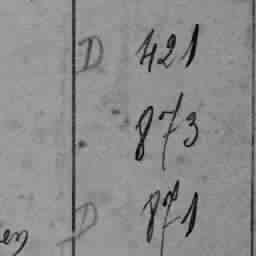 D 421
873
D 871
en